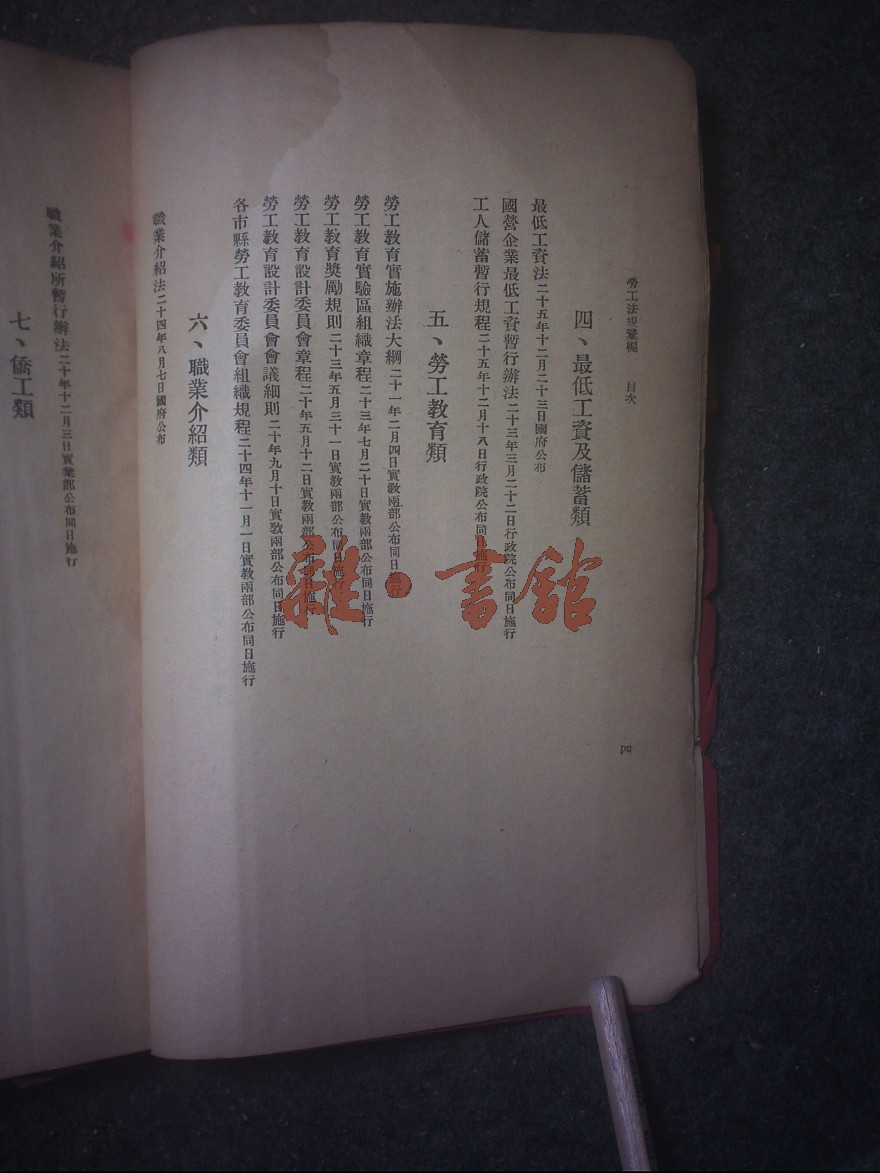 勞工法規彙編 目次
四
四、最低工資及儲蓄類
最低工資法二十五年十二月二十三日國府公布
國營企業最低工資暫行辦法二十三年三月二十二日行政院公布同日施行
工人儲蓄暫行規程二十五年十二月十八日行政院公布同日施行
五、勞工教育類
勞工教育實施辦法大綱二十一年二月四日實教兩部公布同日施行
勞工教育實驗區組織章程二十三年七月二十日實教兩部公布同日施行
勞工教育獎勵規則二十三年五月三十一日實教兩部公布同日施行
勞工教育設計委員會章程二十年五月十二日實教兩部公布同日施行
勞工教育設計委員會會議細則二十年九月十日實教兩部公布同日施行
各市縣勞工教育委員會組織規程二十四年十一月一日實教兩部公布同日施行
六、職業介紹類
職業介紹法二十四年八月七日國府公布
職業介紹所暫行辦法二十年十二月三日實業部公布同日施行
七、僑工類
雜·書館